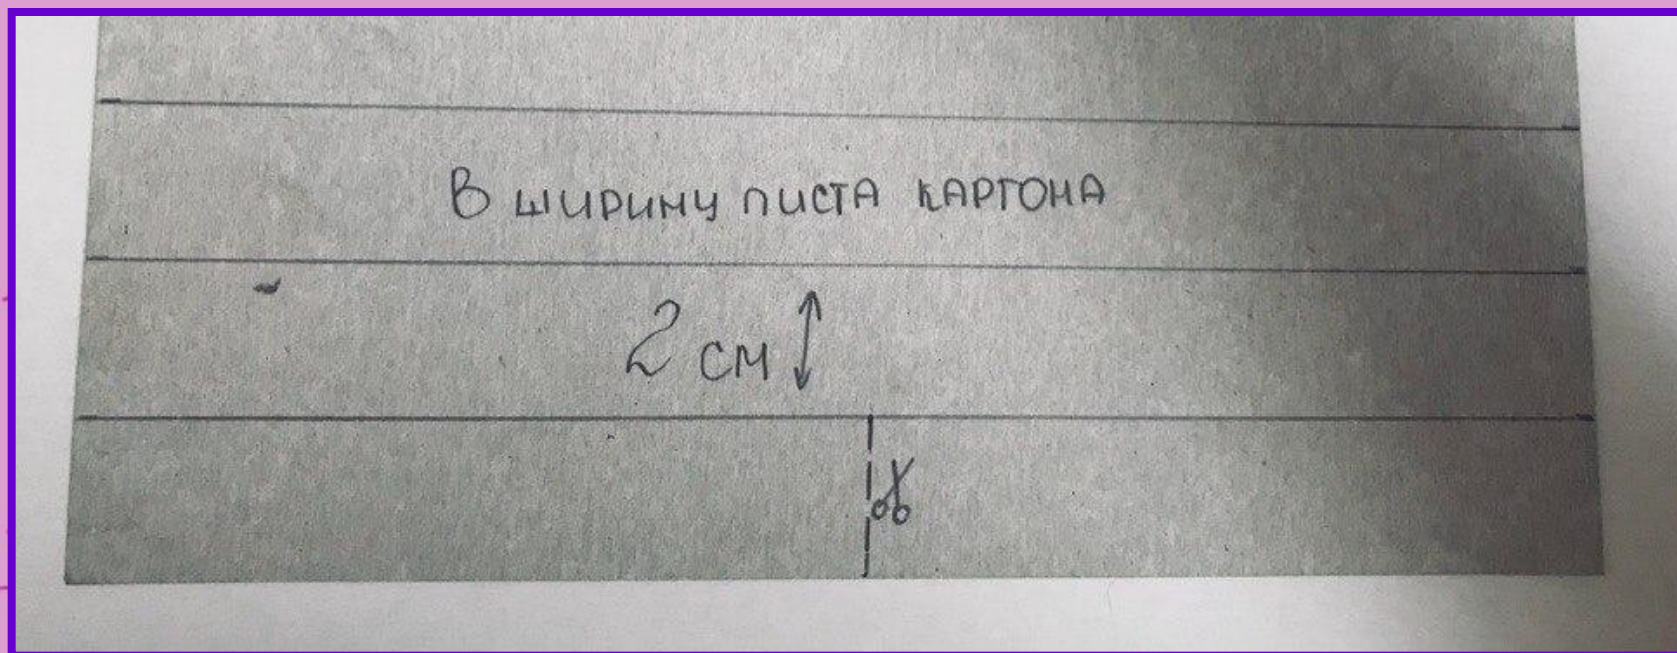 В ширину листа картона
2 см